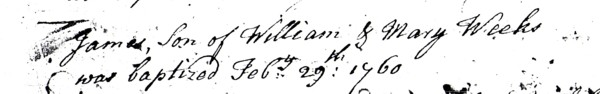 James, Son of William & Mary Weeks
was baptized Febry. 29th. 1760